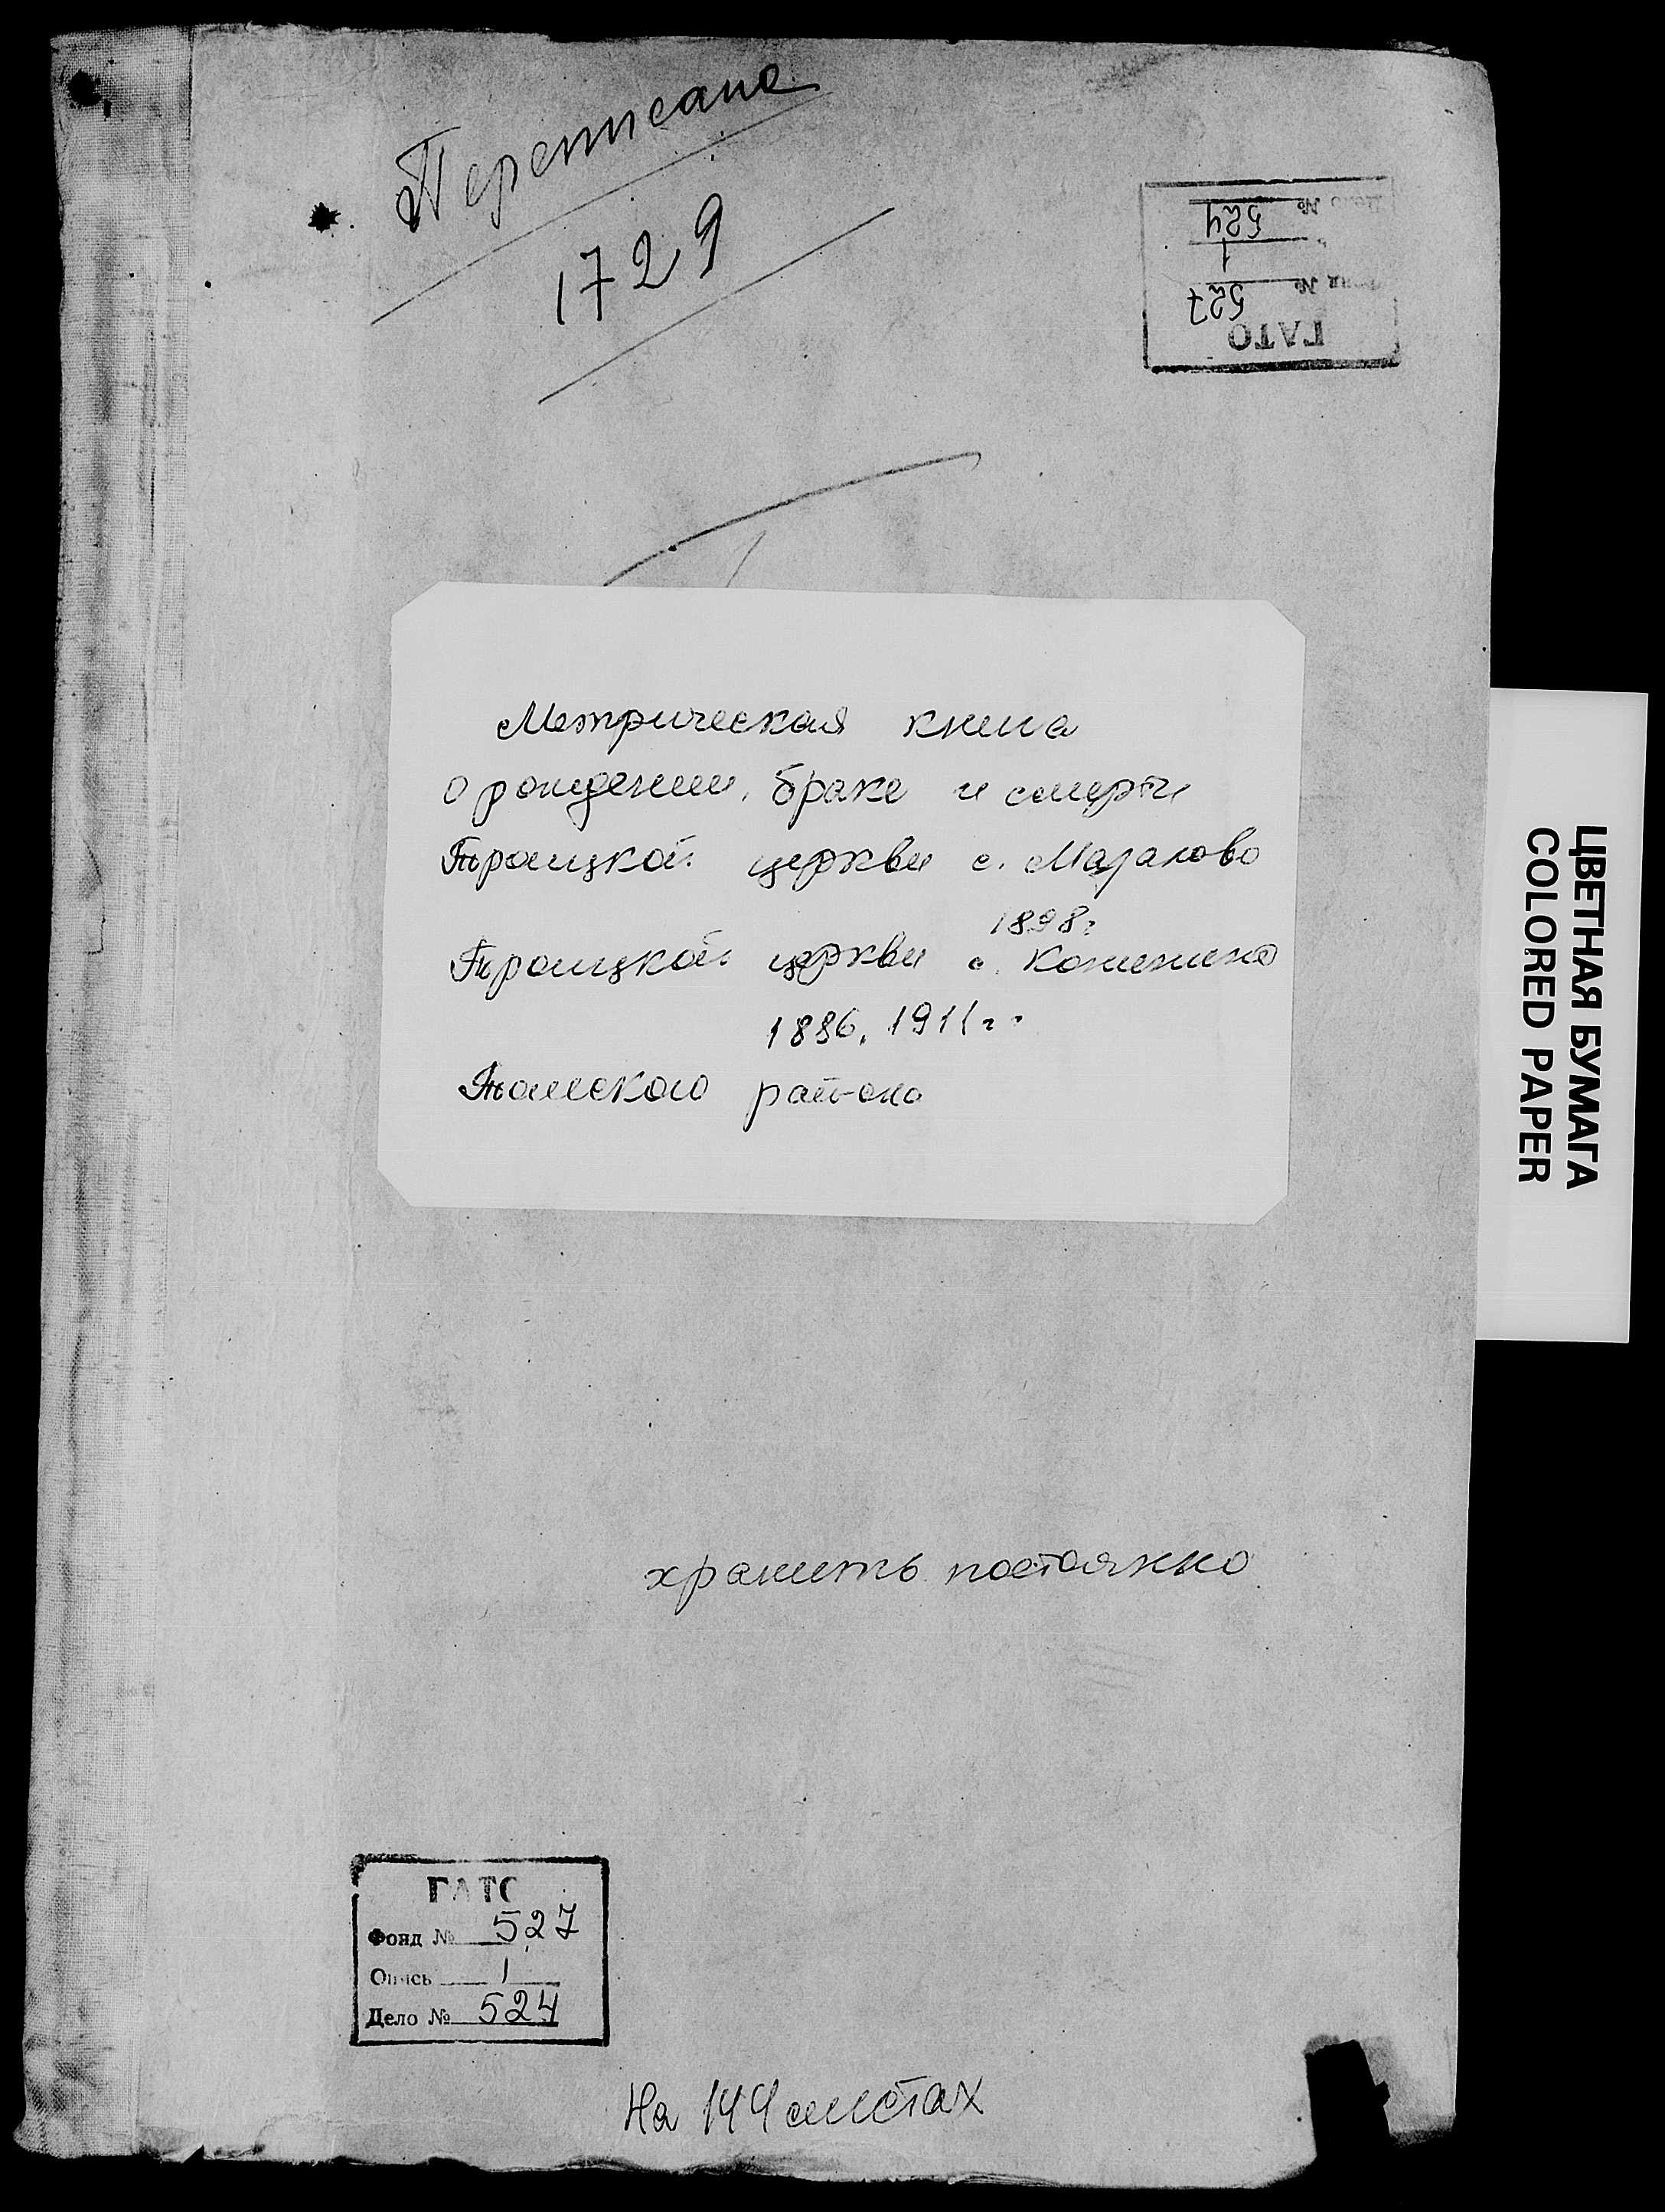 Переписано
1729
ГАТО
527
1
Дело № 524
Метрическая книга
о рождении, браке и смерти
Троицкой церкви с. Мазалово
1898г
Троицкой церкви с. Конинино
1886, 1911гг
Томского района
ЦВЕТНАЯ БУМАГА
COLORED PAPER
хранить постоянно
ГАТО
Фонд № 527
Опись 1
Дело № 524
На 144 листах